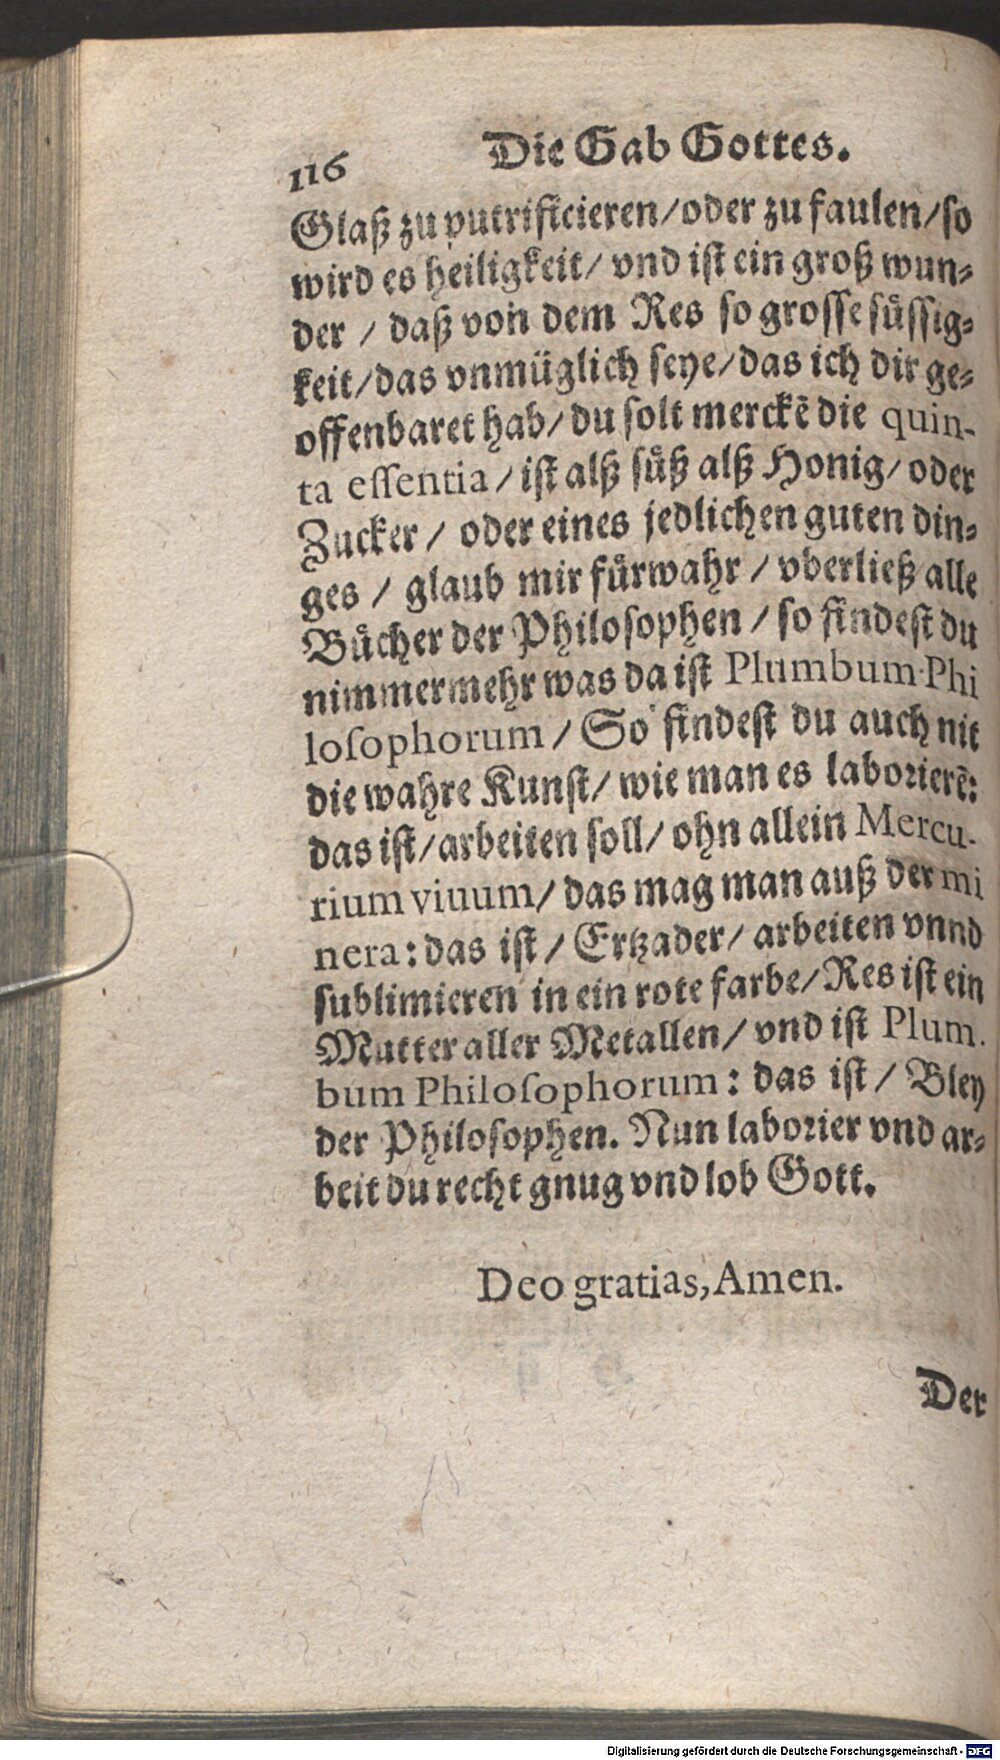 116 Die Gab Gottes.
Glaß zu putrificieren/oder zu faulen/so
wird es heiligkeit/ vnd ist ein groß wun⸗
der / daß von dem Res so grosse süssig⸗
keit/das vnmüglich seye/das ich dir ge⸗
offenbaret hab/ du solt merckẽ die quin-
ta essentia / ist alß süß alß Honig/ oder
Zucker / oder eines jedlichen guten din⸗
ges / glaub mir fürwahr / vberließ alle
Bücher der Philosophen / so findest du
nimmermehr was da ist Plumbum Phi
losophorum / So findest du auch nit
die wahre Kunst/ wie man es laborierẽ:
das ist/arbeiten soll/ ohn allein Mercu-
rium viuum/ das mag man auß der mi
nera: das ist / Ertzader/ arbeiten vnnd
sublimieren in ein rote farbe/ Res ist ein
Mutter aller Metallen/ vnd ist Plum.
bum Philosophorum: das ist / Bley
der Philosophen. Nun laborier vnd ar⸗
beit du recht gnug vnd lob Gott.
Deo gratias, Amen.
Der
Digitalisierung gefördert durch die Deutsche Forschungsgemeinschaft - DFG